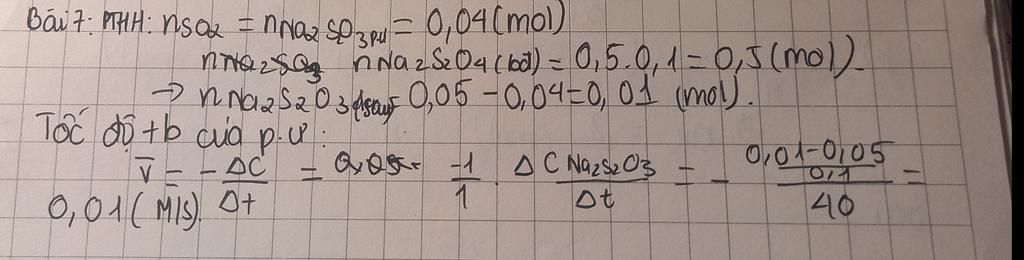 Bài 7: PTHH: nSO2 = nNa2S2O3 pư = 0,04 (mol)
nNa2SO3 nNa2S2O4 (bđ) = 0,5.0,1 = 0,5 (mol).
→ nNa2S2O3 (sau) 0,05 - 0,04 = 0,01 (mol).
Tốc độ +b của p.ư:
v̄ = - ΔC/Δt = 0,05- -1/1 . ΔC Na2S2O3/Δt = - (0,01-0,05/0,1)/40 =
0,01 (M/s).